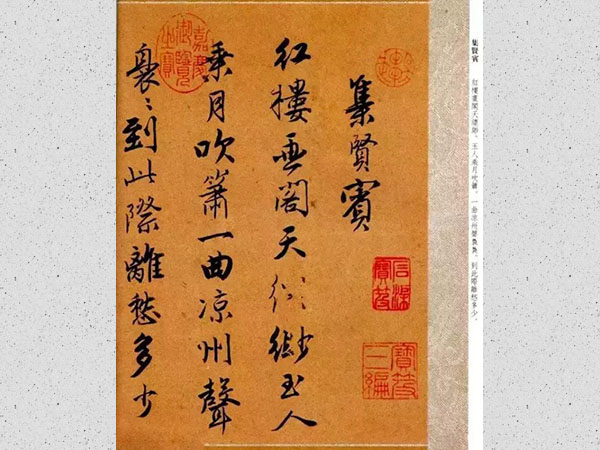 集賢賓
紅樓畫閣天縹緲。玉人乘月吹簫。一曲涼州聲裊裊。到此際離愁多少。
集賢賓
紅樓畫閣天縹緲玉人
乘月吹簫一曲涼州聲
裊〻到此際離愁多少
嘉慶御覽之寶
石渠寶笈
寶笈三編